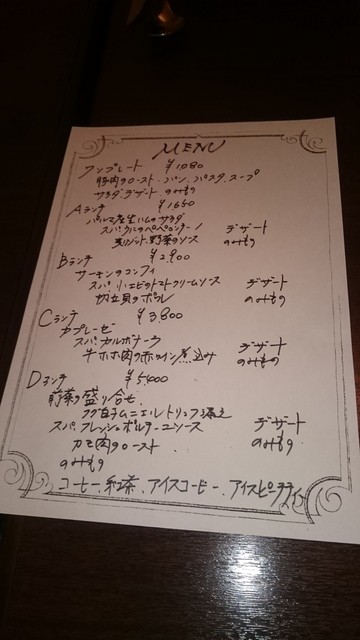 MENU
ワンプレート ¥1080
豚肉のロースト、パン、パスタ、スープ
サラダ、デザート、のみもの
Aランチ ¥1650
パルマ産生ハムのサラダ
スパ ペペロンチーノ デザート
野菜のソース のみもの
Bランチ ¥2,900
サーモンのコンフィ
スパ 小エビのトマトクリームソース デザート
帆立貝のポワレ のみもの
Cランチ ¥3,800
カプレーゼ
スパ カルボナーラ デザート
牛ホホ肉の赤ワイン煮込み のみもの
Dランチ ¥5,400
前菜の盛り合せ
フグ白子ムニエル トリュフ添え
スパ フレッシュポルチーニソース デザート
カモ肉のロースト のみもの
のみもの
コーヒー、紅茶、アイスコーヒー、アイスピーチティ